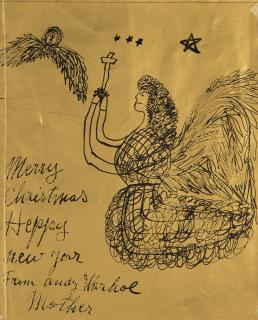 Merry
Christmas
Heppy
new year
From andy Warhol
Mother